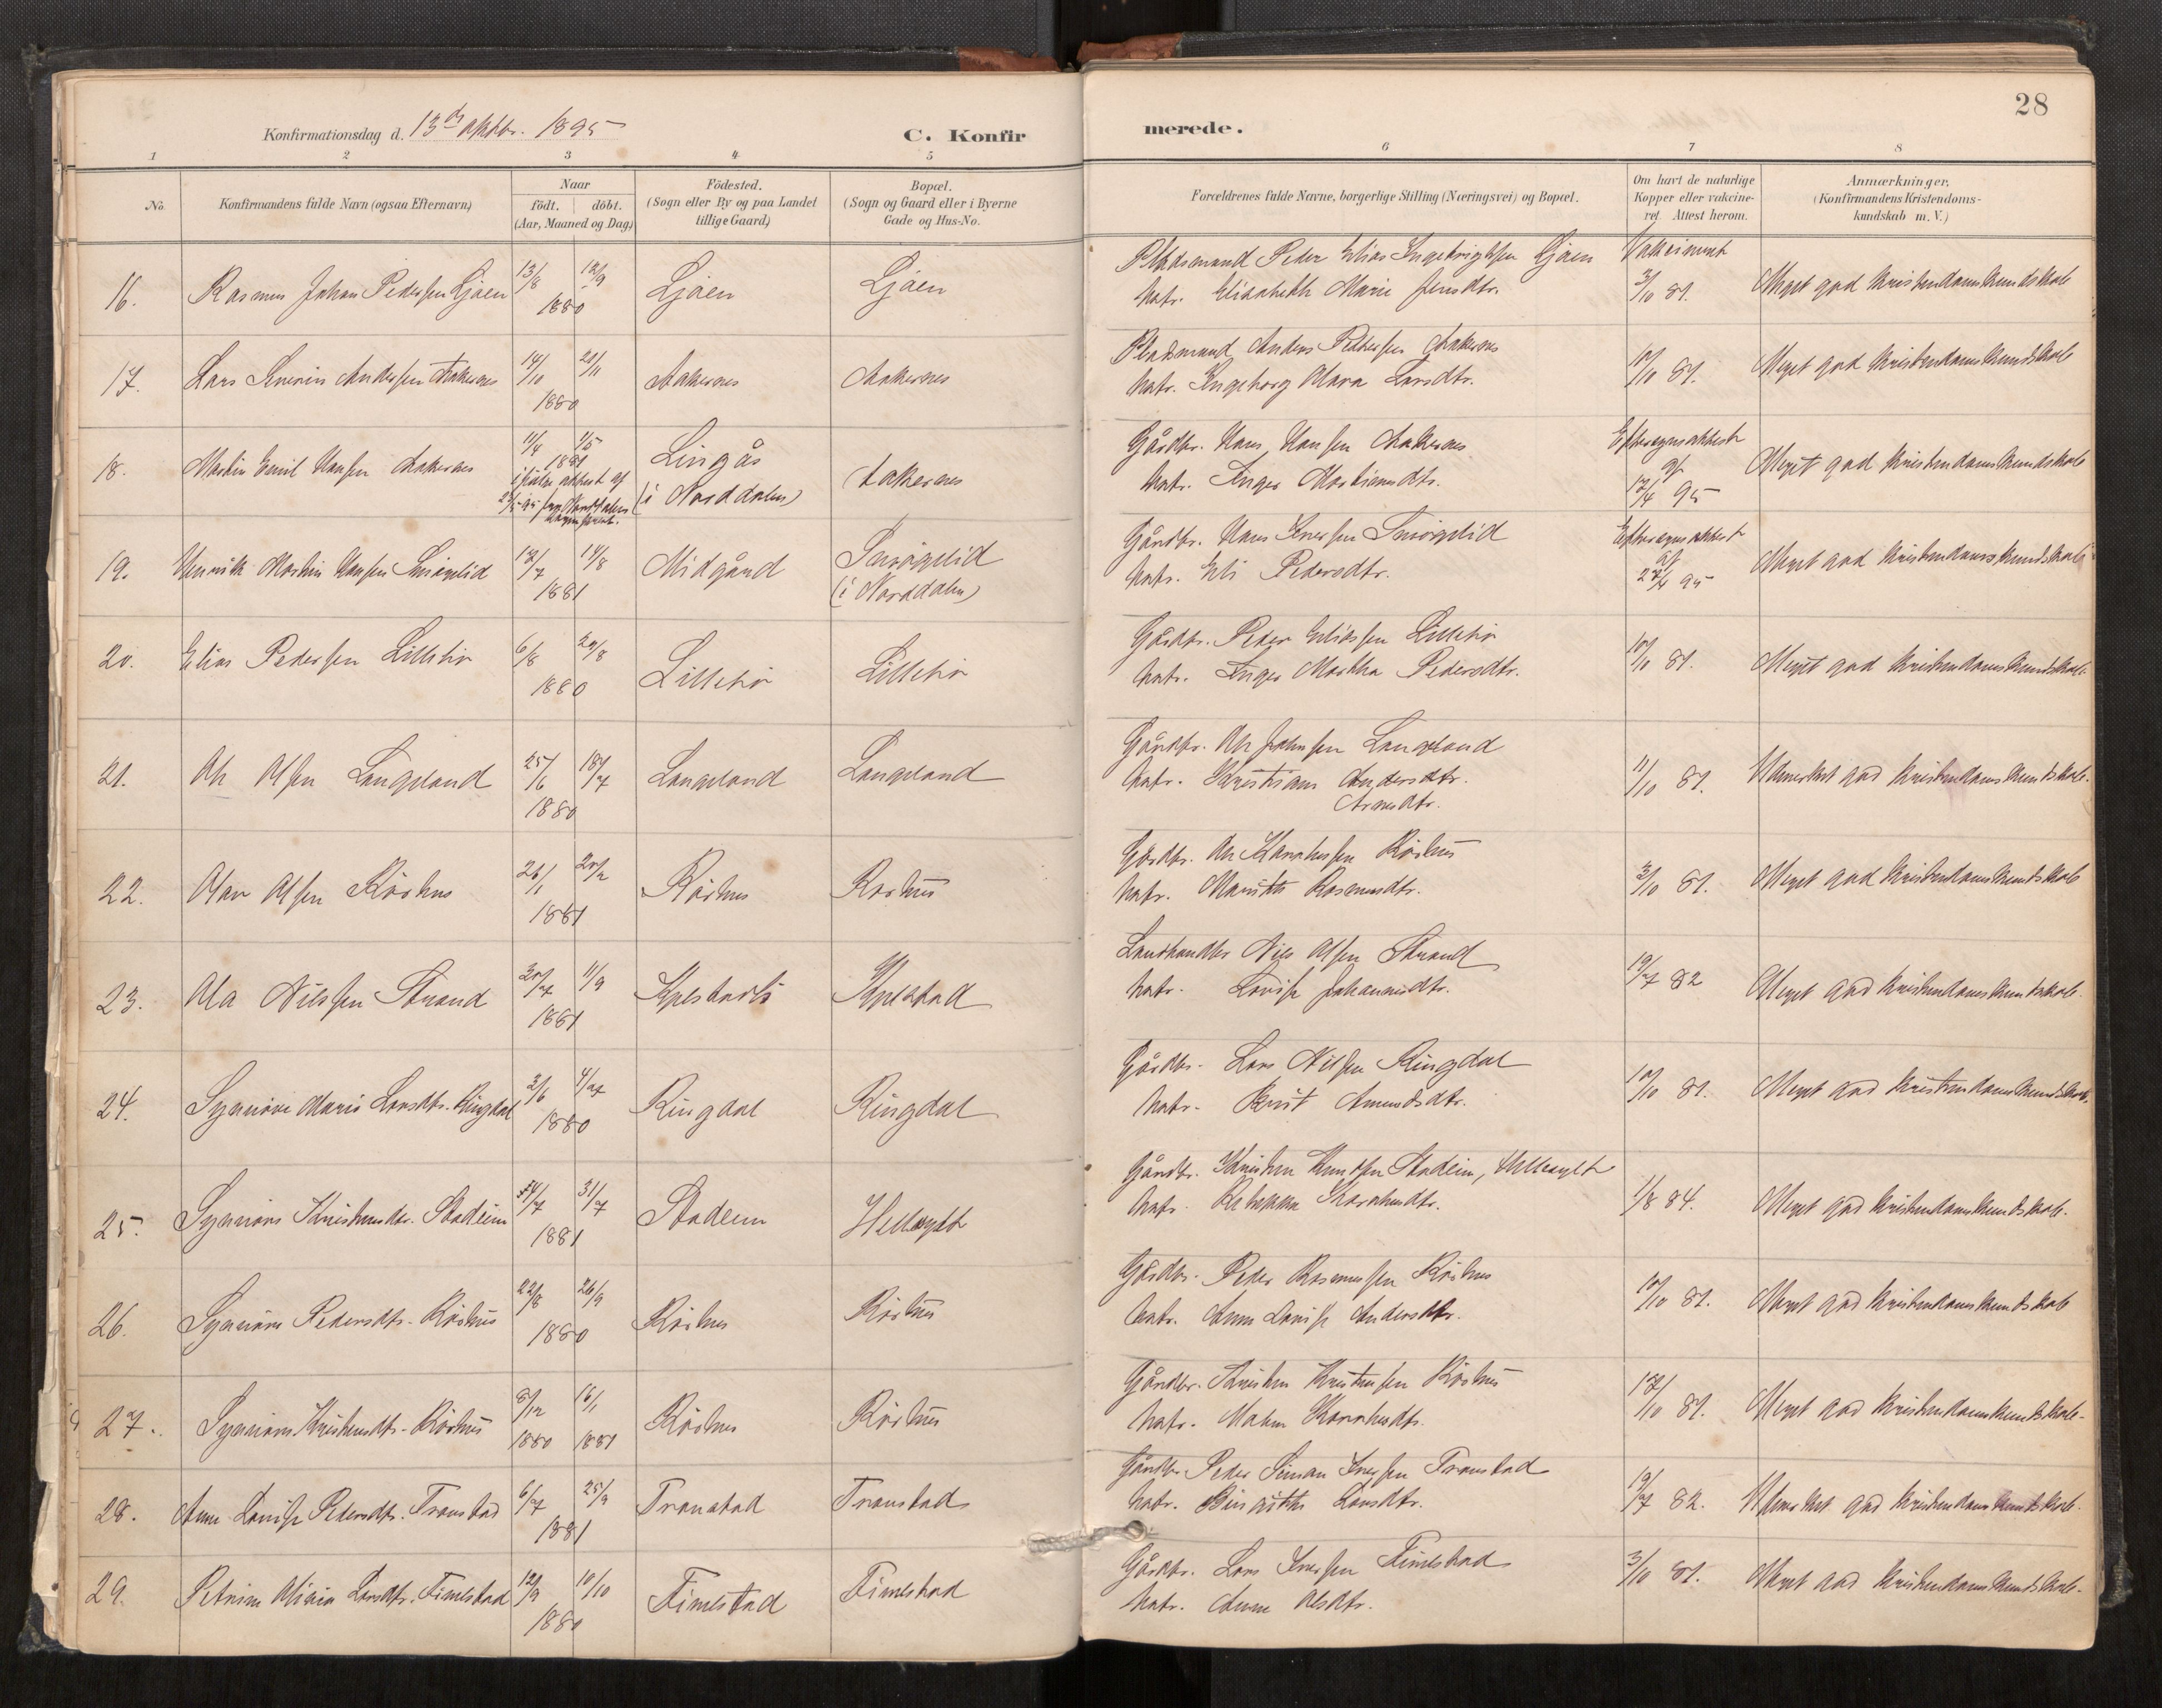 28
Konfirmationsdag d. 13de Oktbr. 1895
C. Konfir
merede.
1 2 3 4 5 6 7 8
No.
Konfirmandens fulde Navn (ogsaa Efternavn)
Naar
födt. döbt.
(Aar, Maaned og Dag)
Födested.
(Sogn eller By og paa Landet
tillige Gaard)
Bopæl.
(Sogn og Gaard eller i Byerne
Gade og Hus-No.
Forældrenes fulde Navne, borgerlige Stilling (Næringsvei) og Bopæl.
Om havt de naturlige
Kopper eller vakcine-
ret. Attest herom.
Anmærkninger.
(Konfirmandens Kristendoms-
kundskab m. V.)
16. Rasmus Johan Pedersen Ljøen 13/8 12/9 Ljøen Ljøen
1880
Pladsmand Peder Elias Ingebrigtsen Ljøen
hstr. Elisabeth Marie Jensdtr.
Vakcineret
3/10 81.
Meget god Kristendomskundskab
17. Lars Severin Andersen Aakernes 14/10 21/11 Aakernes Aakernes
1880
Pladsmand Anders Pedersen Aakernes
hstr. Ingeborg Olava Larsdtr.
10/10 81.
Meget god Kristendomskundskab
18. Martin Emil Hansen Aakernes 11/4 1/5 Lingås Aakernes
1881
(i Norddalen)
Gårdbr. Hans Hansen Aakernes
hstr. Inger Martinusdtr.
Eftersynsattest
af
12/4 95
Meget god Kristendomskundskab
19. Henrik Martin Hansen Smøgelid 12/7 14/8 Midgård Smøgelid
1881
(i Norddalen)
Gårdbr. Hans Iversen Smøgelid
hstr. Eli Pedersdtr.
Eftersynsattest
af
27/4 95
Meget god Kristendomskundskab
20. Elias Pedersen Lillebø 6/8 29/8 Lillebø Lillebø
1880
Gårdbr. Peder Eliassen Lillebø
hstr. Inger Martha Pedersdtr.
10/10 81.
Meget god Kristendomskundskab
21. Ole Olsen Langeland 25/6 18/7 Langeland Langeland
1880
Gårdbr. Ole Johnsen Langeland
hstr. Kristiane Andersdtr.
Arnesdtr.
11/10 81.
Udmerket god Kristendomskundskab.
22. Olav Olsen Røshus 26/1 20/2 Røshus Røshus
1881
Gårdbr. Ole Knudsen Røshus
hstr. Marithe Rasmusdtr.
3/10 81.
Meget god Kristendomskundskab
23. Ola Nilssen Strand 30/7 11/9 Kjelstadli Kjelstad
1881
Landhandler Nils Olsen Strand
hstr. Lovise Johannesdtr.
19/7 82
Meget god Kristendomskundskab.
24. Synnöve Marie Larsdtr. Ringdal 3/6 4/7 Ringdal Ringdal
1880
Gårdbr. Lars Nilsen Ringdal
hstr. Brit Amundsdtr.
10/10 81.
Meget god Kristendomskundskab.
25. Synnöve Kristensdtr. Stadeim 31/7 Stadeim Hellesylt
1881
Gårdbr. Kristen Knudsen Stadeim, Hellesylt
hstr. Rebekka
1/8 84.
Meget god Kristendomskundskab.
26. Synnöve Pedersdtr. Røshus 22/8 26/9 Røshus Røshus
1880
Gårdbr. Peder Rasmussen Røshus
hstr. Anne Lovise Andersdtr.
10/10 81.
Meget god Kristendomskundskab
27. Synnöve Kristensdtr. Røshus 8/12 16/1 Røshus Røshus
1880 1881
Gårdbr. Kristen Kristensen Røshus
hstr. Malene
12/10 81.
Meget god Kristendomskundskab.
28. Anne Lovise Pedersdtr. Tronstad 6/7 25/9 Tronstad Tronstad
1881
Gårdbr. Peder Simon Iversen Tronstad
hstr. Birgitte Larsdtr.
19/7 82.
Udmerket god Kristendomskundskab.
29. Petrine Olivia Larsdtr. Fivelstad 12/9 10/10 Fivelstad Fivelstad
1880
Gårdbr. Lars Iversen Fivelstad
hstr. Anne Olsdtr.
3/10 81.
Meget god Kristendomskundskab.